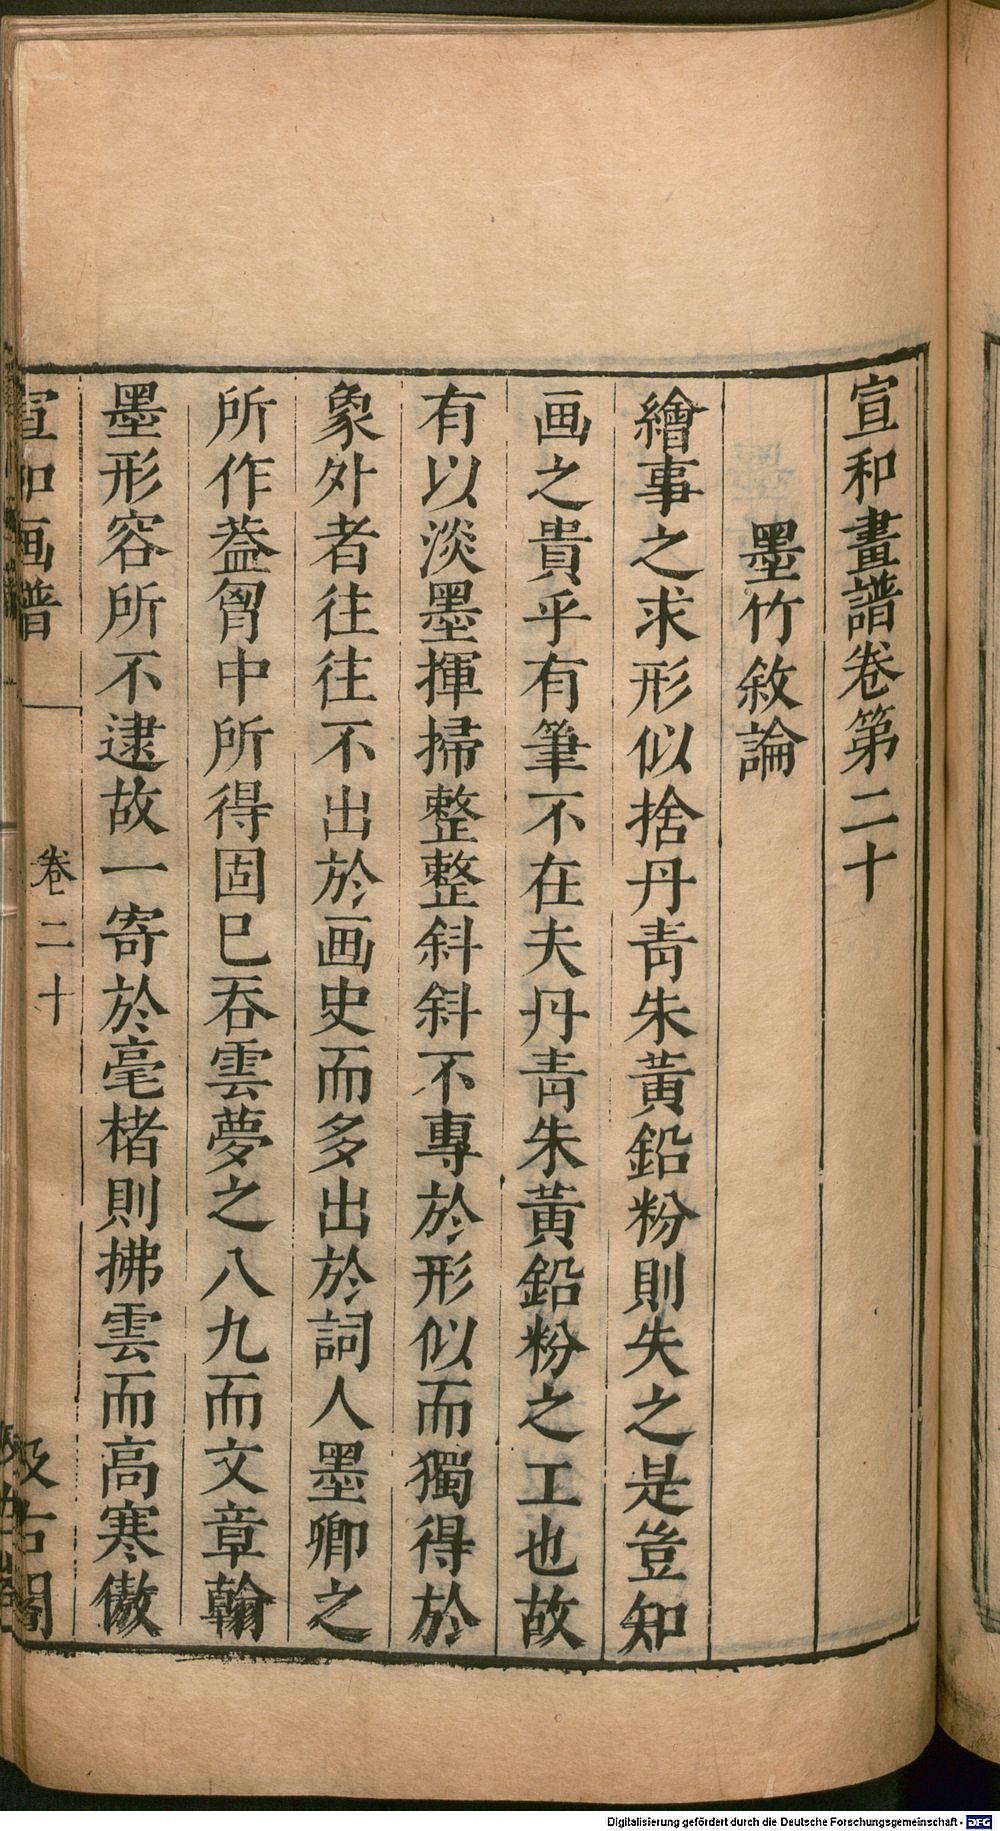 宣和畫譜卷第二十
墨竹敘論
繪事之求形似捨丹青朱黃鉛粉則失之是豈知
画之貴乎有筆不在夫丹青朱黃鉛粉之工也故
有以淡墨揮掃整整斜斜不專於形似而獨得於
象外者往往不出於画史而多出於詞人墨卿之
所作葢胷中所得固巳吞雲夢之八九而文章翰
墨形容所不逮故一寄於毫楮則拂雲而高寒傲
宣和画譜
卷二十
汲古閣
Digitalisierung gefördert durch die Deutsche Forschungsgemeinschaft - DFG